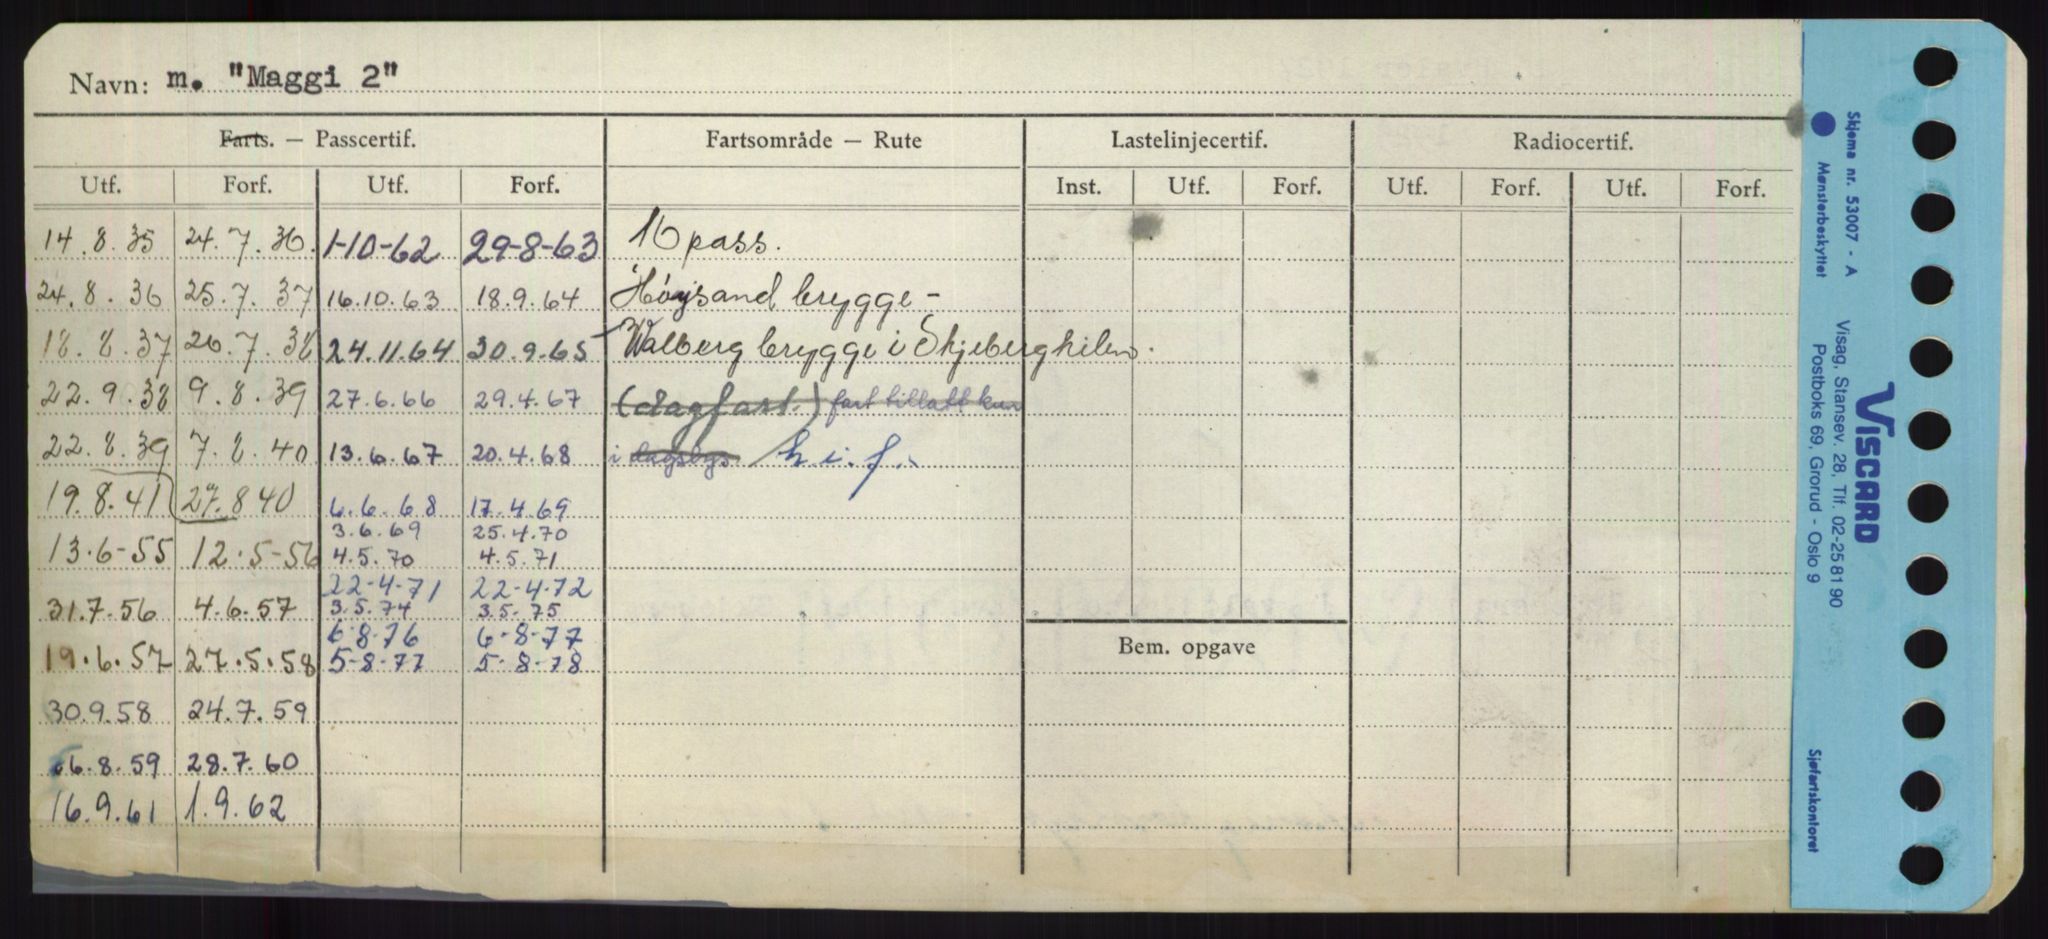 Navn: m. "Maggi 2"
Farts. — Passcertif. Fartsområde — Rute Lastelinjecertif. Radiocertif.
Utf. Forf. Utf. Forf. Inst. Utf. Forf. Utf. Forf. Utf. Forf.
14.8.35 24.7.36. 1-10-62 29-8-63 16 pass.
24.8.36 25.7.37 16.10.63 18.9.64 Høysand brygge -
18.8.37 26.7.38 24.11.64 30.9.65 Walberg brygge i Skjebergkilen.
22.9.38 9.8.39 27.6.66 29.4.67 (dagfart.) fart tillatt kun
22.8.39 7.8.40 13.6.67 20.4.68 i dagslys h.i.f.
19.8.41 27.8 40 6.6.68 17.4.69
3.6.69 25.4.70
13.6-55 12.5-56 4.5.70 4.5.71
22-4-71 22-4-72
31.7.56 4.6.57 3.5.74 3.5.75
6-8-76 6-8-77
19.6.57 27.5.58 5-8-77 5-8-78
Bem. opgave
30.9.58 24.7.59
26.8.59 28.7.60
16.9.61 1.9.62
Skjema nr. 53007 - A
Mønsterbeskyttet
Visag, Stansev. 28, Tlf. 02-25 81 90
Postboks 69, Grorud - Oslo 9
VISCARD
Sjøfartskontoret